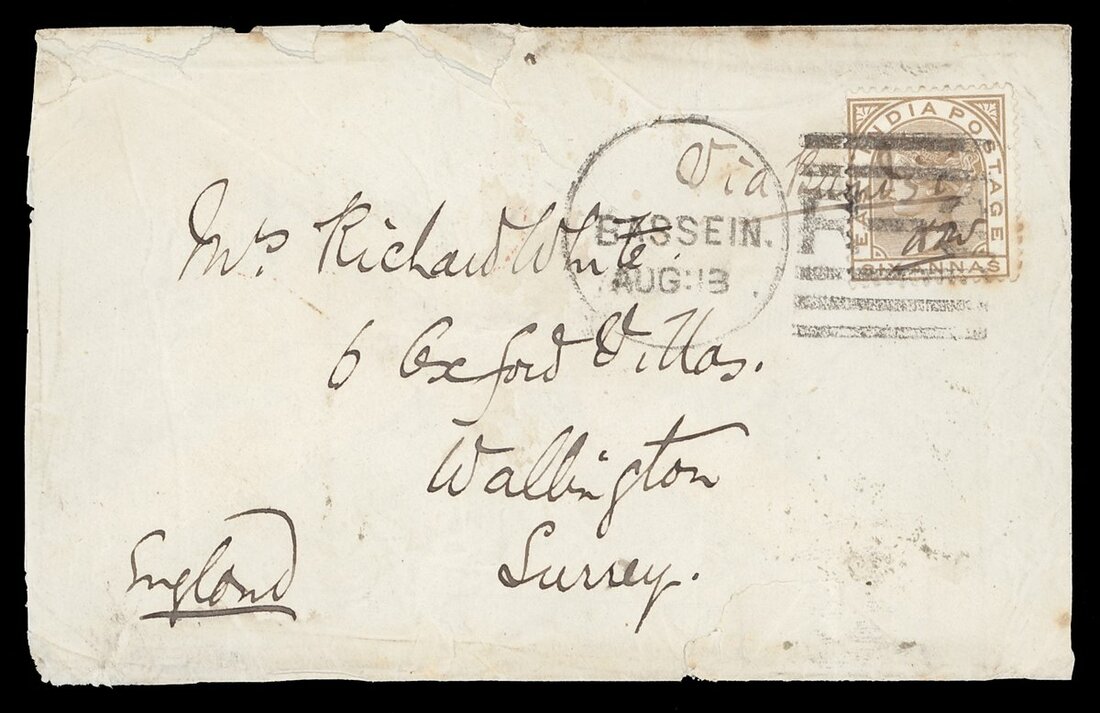 EAST INDIA POSTAGE
Via Brindisi
BASSEIN.
AUG:13
R
SIX ANNAS
Mrs Richard White.
6 Oxford Villas.
Wallington
Surrey.
England